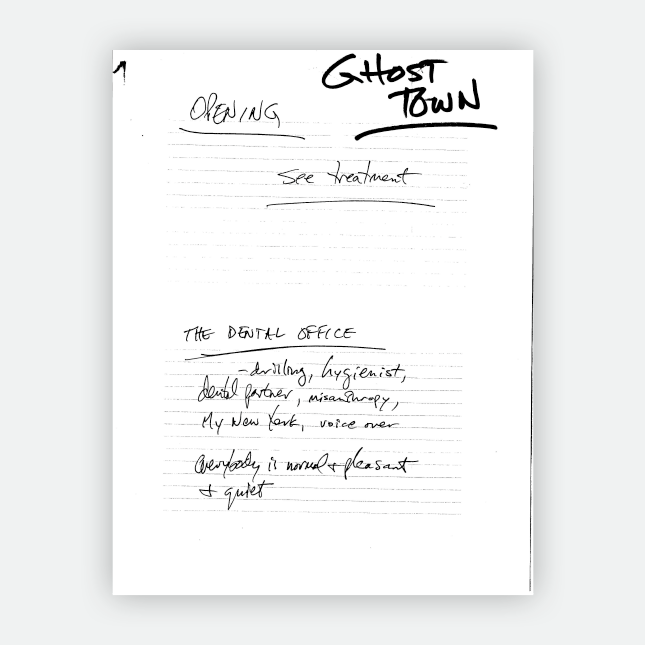 GHOST
TOWN
OPENING
See treatment
THE DENTAL OFFICE
- drilling, hygienist,
dental partner, misanthropy,
My New York, voice over
everybody is normal + pleasant
+ quiet